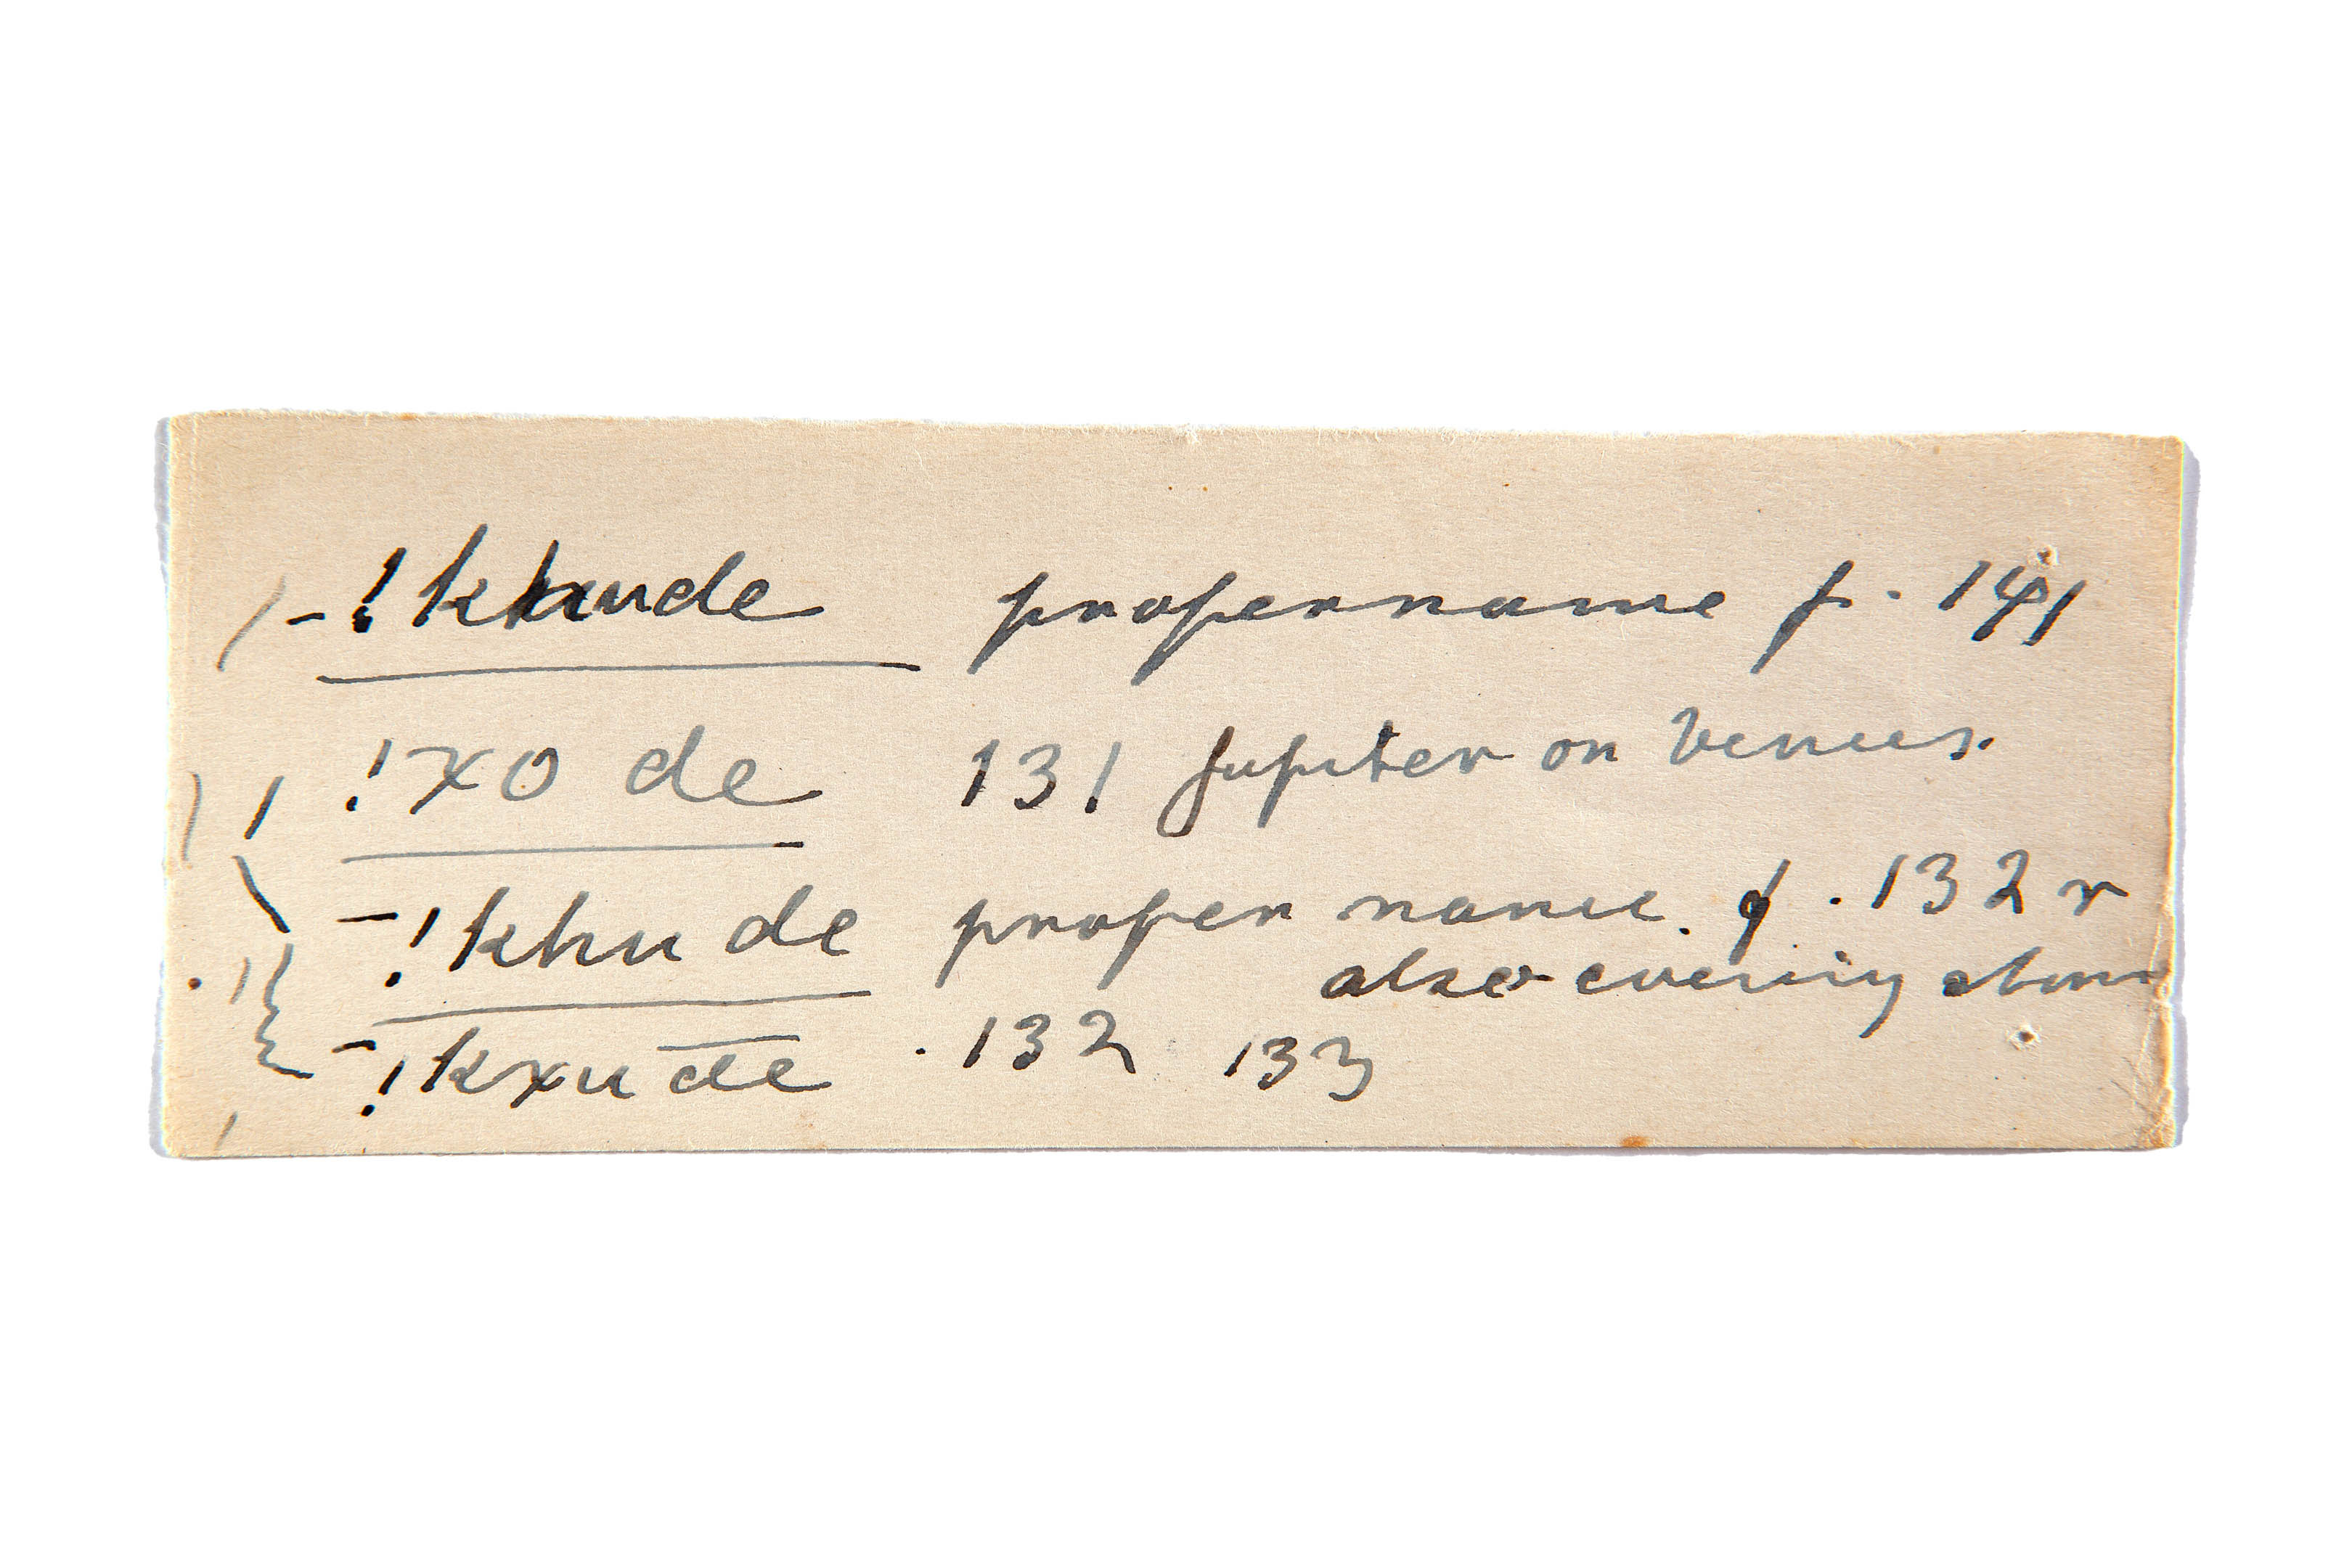 -!khude propername p. 141
!xo de 131 Jupiter or Venus.
-!khu de proper name. p. 132 r
also evening star
-!kxu de . 132 133